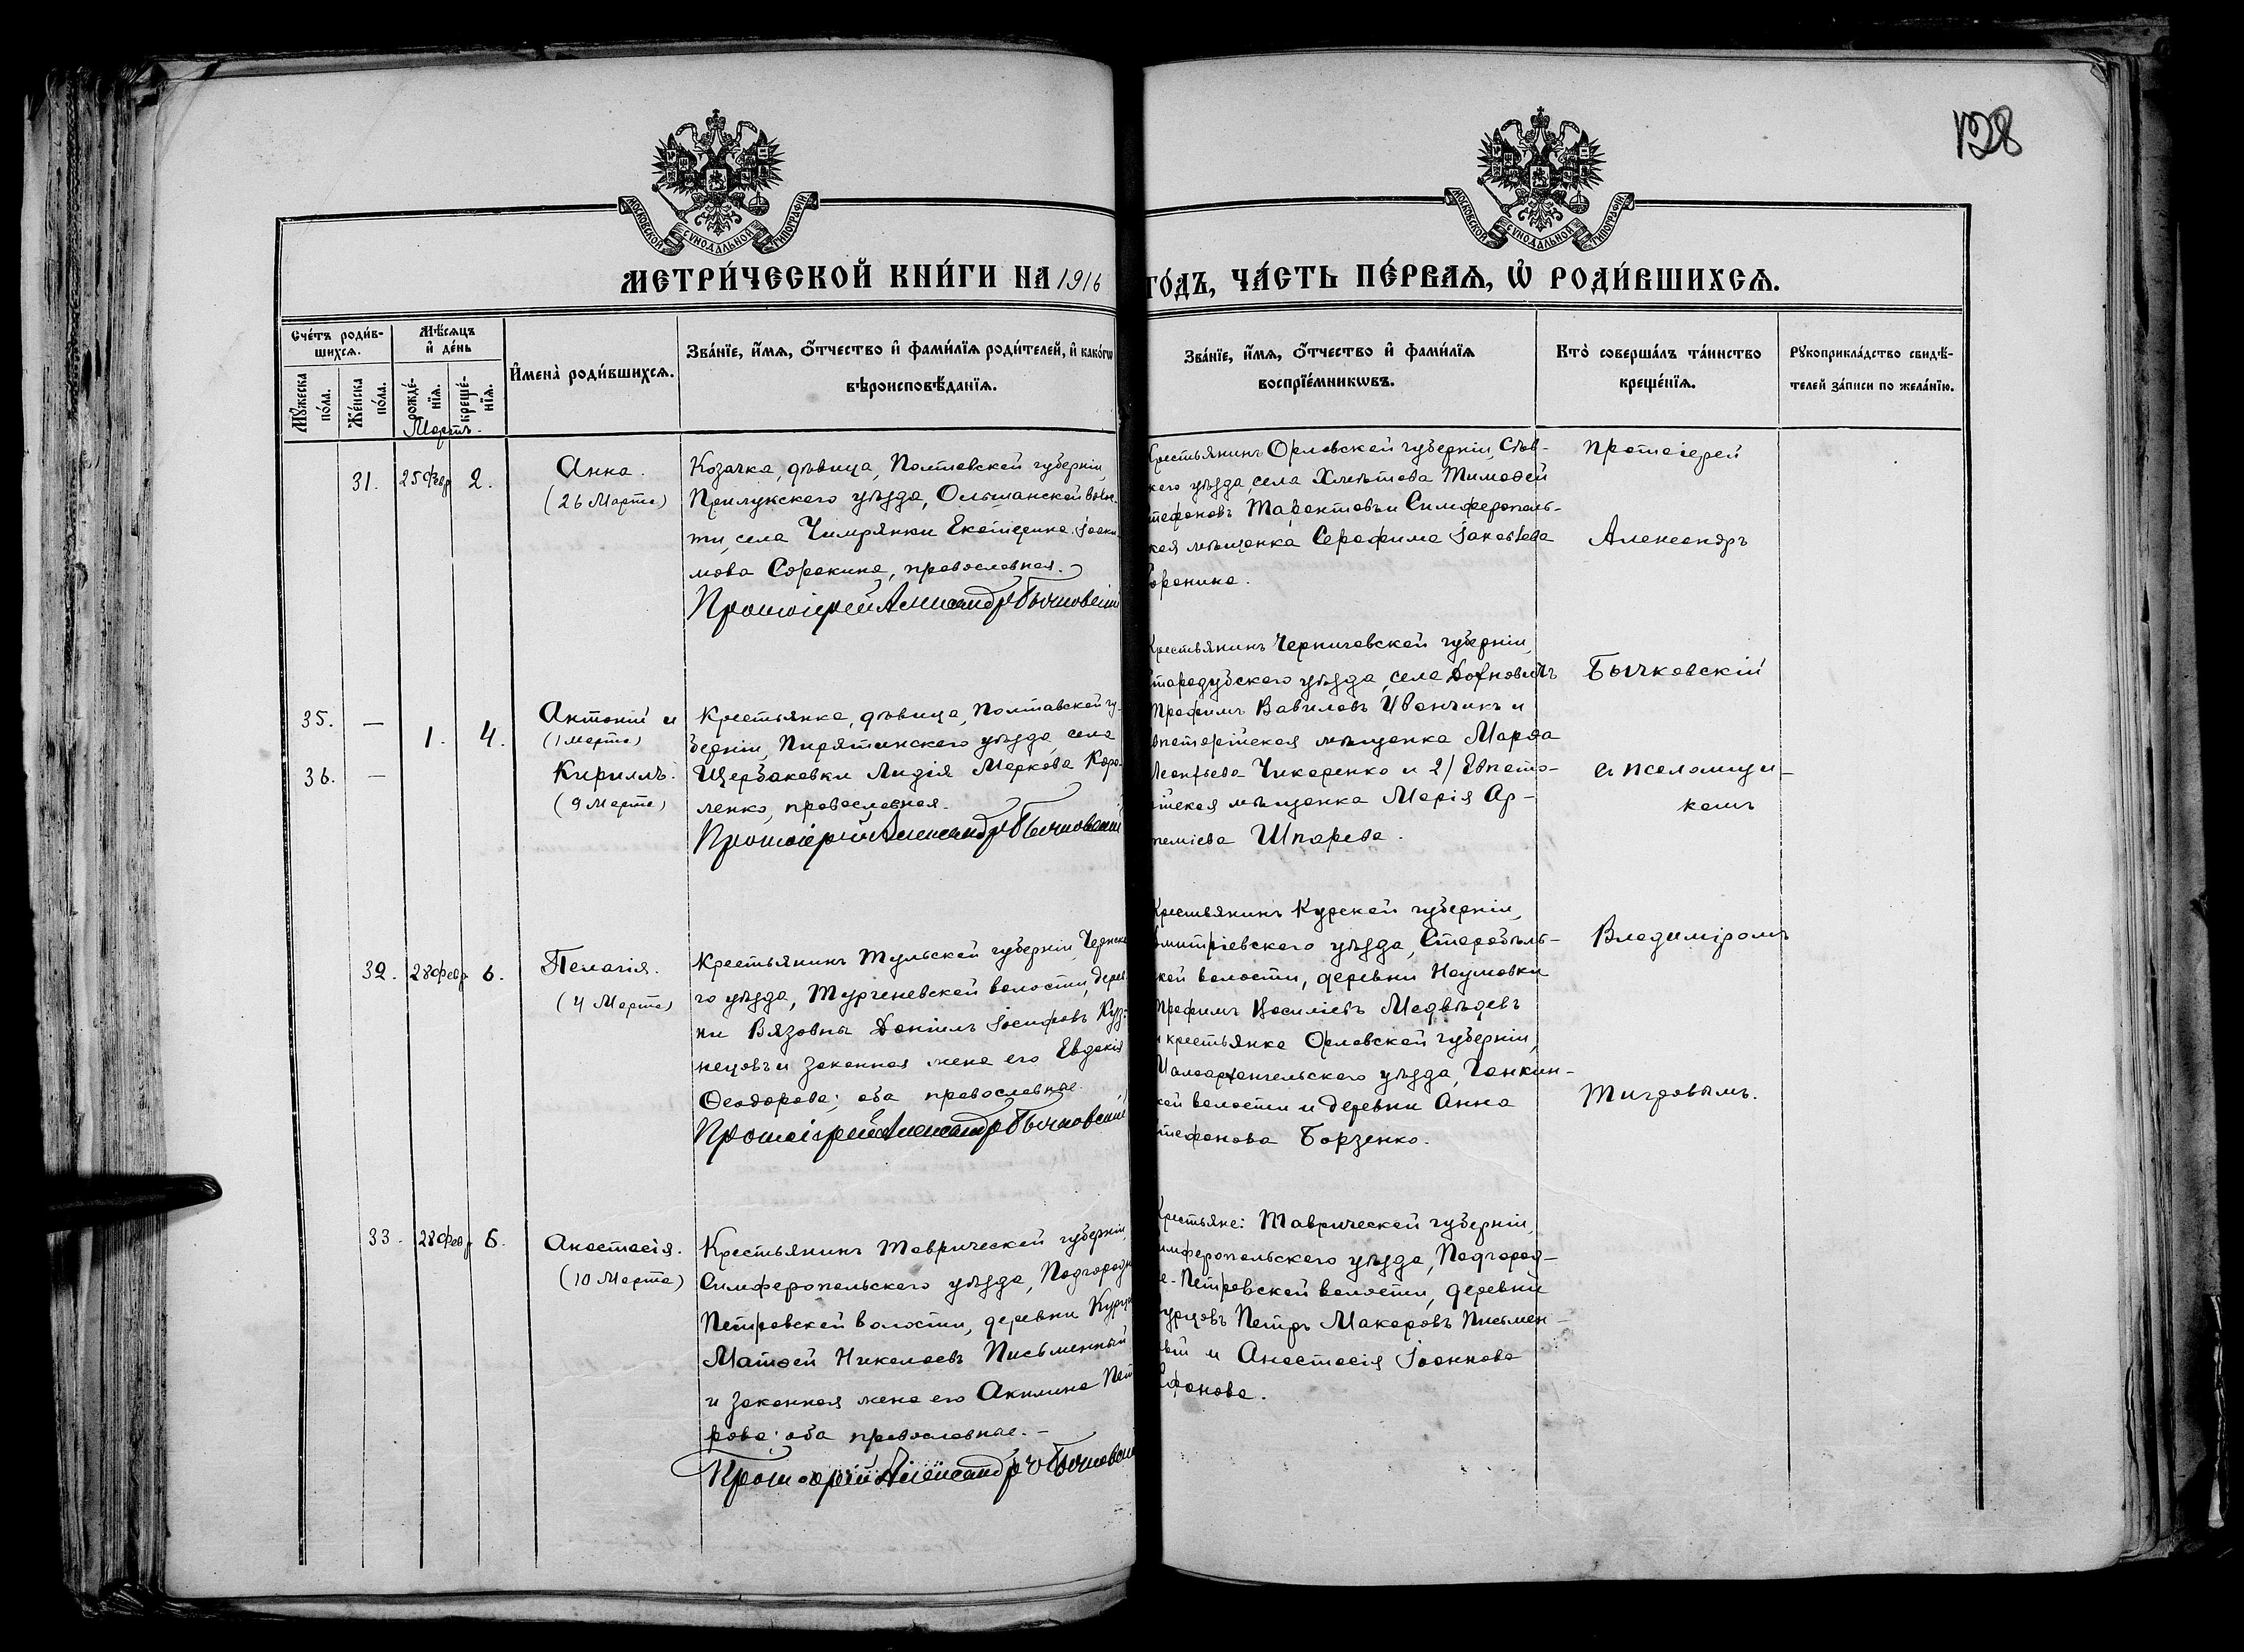 128
МОСКОВСКОЙ СУНОДАЛЬНОЙ ТИПОГРАФІИ
МОСКОВСКОЙ СУНОДАЛЬНОЙ ТИПОГРАФІИ
МЕТРИ́ЧЕСКОЙ КНИ́ГИ НА 1916 ГО́ДЪ, ЧА́СТЬ ПЕ́РВАѦ, Ѡ РОДИ́ВШИХСѦ.
Сче́тъ роди́в-
шихсѧ.
Мꙋ́жеска по́ла.
Же́нска по́ла.
Мѣ́сѧцъ и҆ де́нь
рожде́-
нїѧ.
креще́-
нїѧ.
И҆мена̀ роди́вшихсѧ.
Зва́нїе, и҆́мѧ, ѻ҆́тчество и҆ фами́лїѧ роди́телей, и҆ како́гѡ
вѣроисповѣ́данїѧ.
Зва́нїе, и҆́мѧ, ѻ҆́тчество и҆ фами́лїѧ
воспрїе́мникѡвъ.
Кто̀ соверша́лъ та́инство
креще́нїѧ.
Рꙋкоприкла́дство свидѣ́-
телей за́писи по жела́нїю.
Мартъ.
31. 25 Февр 2.
Анна.
(26 Марта)
Козачка, дѣвица, Полтавской губерніи,
Прилукского уѣзда, Ольшанской волос-
ти, села Екатерина Іоаки-
мова Сорокина, православная.
Протоіерей Александръ Бычковскій
Крестьянинъ Орловской губерніи, Сѣв-
кого уѣзда, села Тимофей
тефановъ и Симферополь-
кая мѣщанка Серафима Іаковлева
оронина.
Протоіерей
Александръ
Бычковскій
съ псаломщи-
комъ
Владиміромъ
35. — 1. 4.
36. —
Антоній и
(1 марта)
Кириллъ.
(9 Марта)
Крестьянка, дѣвица, Полтавской гу-
берніи, Пирятинского уѣзда, села
Щербаковки Лидія Маркова Каро-
ленко, православная.
Протоіерей Александръ Бычковскій
Крестьянинъ Черниговской губерніи,
тародубского уѣзда, села Дохновичъ
Трофимъ Вавиловъ Иванчикъ и
впаторійская мѣщанка Марѳа
Леонтьева Чикаренко и 2) Евпато-
ійская мѣщанка Марія Ар-
теміева Шпарева.
32. 28 февр. 6.
Пелагія.
(4 Марта)
Крестьянинъ Тульской губерніи, Чернска
го уѣзда, Тургеневской волости, дерев
ни Вязовны Даніилъ Іосифовъ Куз-
нецовъ и законная жена его Евдокія
Ѳеодорова; оба православные.
Протоіерей Александръ Бычковскій
Крестьянинъ Курской губерніи,
митріевского уѣзда, Старобѣль-
кой волости, деревни Наумовки
Трофимъ Василіевъ Медвѣдевъ
и крестьянка Орловской губерніи,
Малоархангельского уѣзда,
кой волости и деревни Анна
тефанова Борзенко.
33. 28 Февр 6.
Анастасія.
(10 Марта)
Крестьянинъ Таврической губерніи,
Симферопольского уѣзда, Подгородн
Петровской волости, деревни Курцы
Матѳей Николаевъ Письменный
и законная жена его Акилина Пет
рова; оба православные. —
Протоіерей Александръ Бычковскій
Крестьяне: Таврической губерніи,
имферопольского уѣзда, Подгород-
е-Петровской волости, деревни
урцовъ Петръ Макаровъ Письмен-
ый и Анастасія Іоаннова